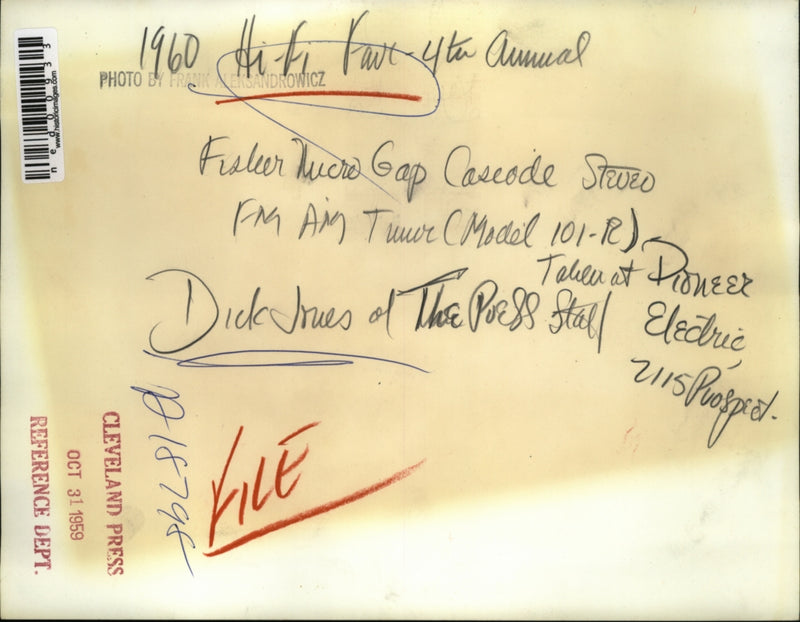 1960 Hi-Fi Fair - 4th Annual
PHOTO BY FRANK ALEKSANDROWICZ
Fisher Micro Gap Cascode Stereo
FM AM Tuner (Model 101-R)
Taken at Pioneer
Electric,
2115 Prospect.
Dick Jones of The Press Staff
FILE
CLEVELAND PRESS
OCT 31 1959
REFERENCE DEPT.
ned00933
www.historicimages.com